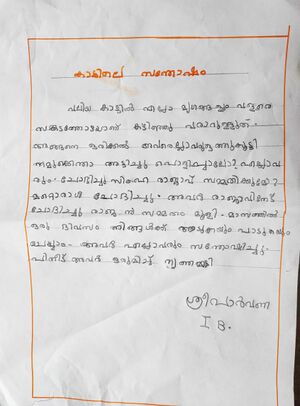 കാട്ടിലെ സന്തോഷം
വലിയ കാട്ടിൽ എല്ലാ മൃഗങ്ങളും വളരെ
സങ്കടത്തോടെയാണ് കഴിഞ്ഞു വരുന്നത്
അങ്ങനെ ഒരിക്കൽ അവരെല്ലാവരും
നമുക്കൊന്ന് അടിച്ചു പൊളിച്ചാലോ? എല്ലാവ
രും ചോദിച്ചു സിംഹ രാജാവ് സമ്മതിക്കുമോ?
മറ്റൊരാൾ ചോദിച്ചു. അവർ രാജാവിനോട്
ചോദിച്ചു രാജൻ സമ്മതം മൂളി. മാസത്തിൽ
ഒരു ദിവസം നിങ്ങൾക്ക് ആടുകയും പാടുകയും
ചെയ്യാം. അവർ എല്ലാവരും സന്തോഷിച്ചു.
പിന്നീട് അവർ ഒരുമിച്ച് നൃത്തമാടി
ശ്രീപാർവണ
I B.